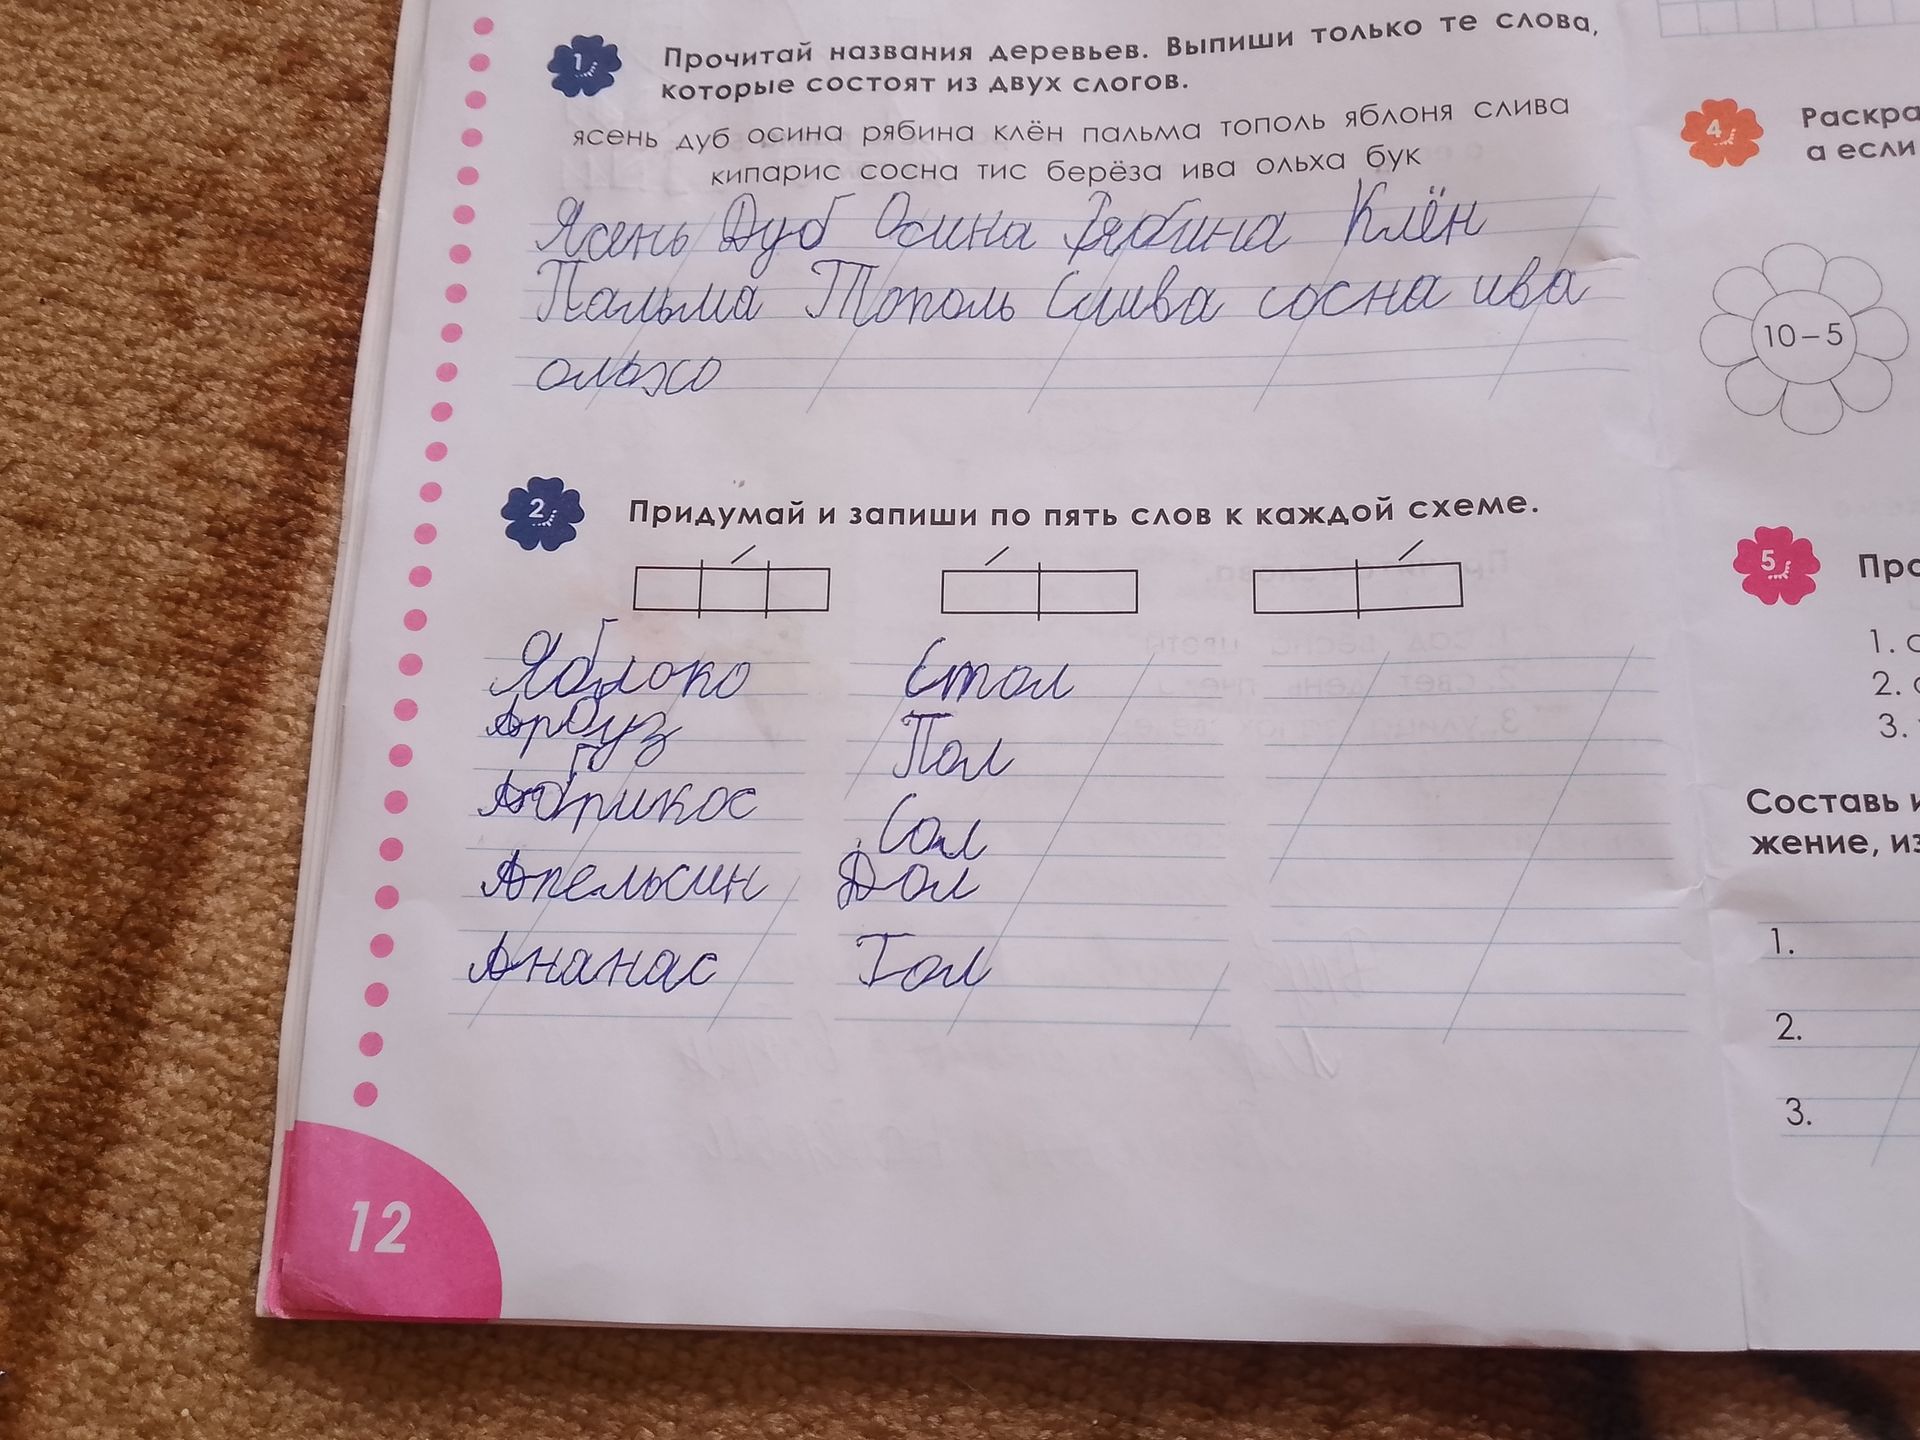 1.
Прочитай названия деревьев. Выпиши только те слова,
которые состоят из двух слогов.
ясень дуб осина рябина клён пальма тополь яблоня слива
кипарис сосна тис берёза ива ольха бук
Ясень Дуб Осина Рябина Клён
Пальма Тополь Слива сосна ива
ольхо
2.
Придумай и запиши по пять слов к каждой схеме.
Яблоко Стол
Арбуз Пол
Абрикос Сол
Апельсин Дол
Ананас Гол
12
4.
Раскра
а если
10–5
5.
Про
1. с
2. с
3.
Составь и
жение, из
1.
2.
3.